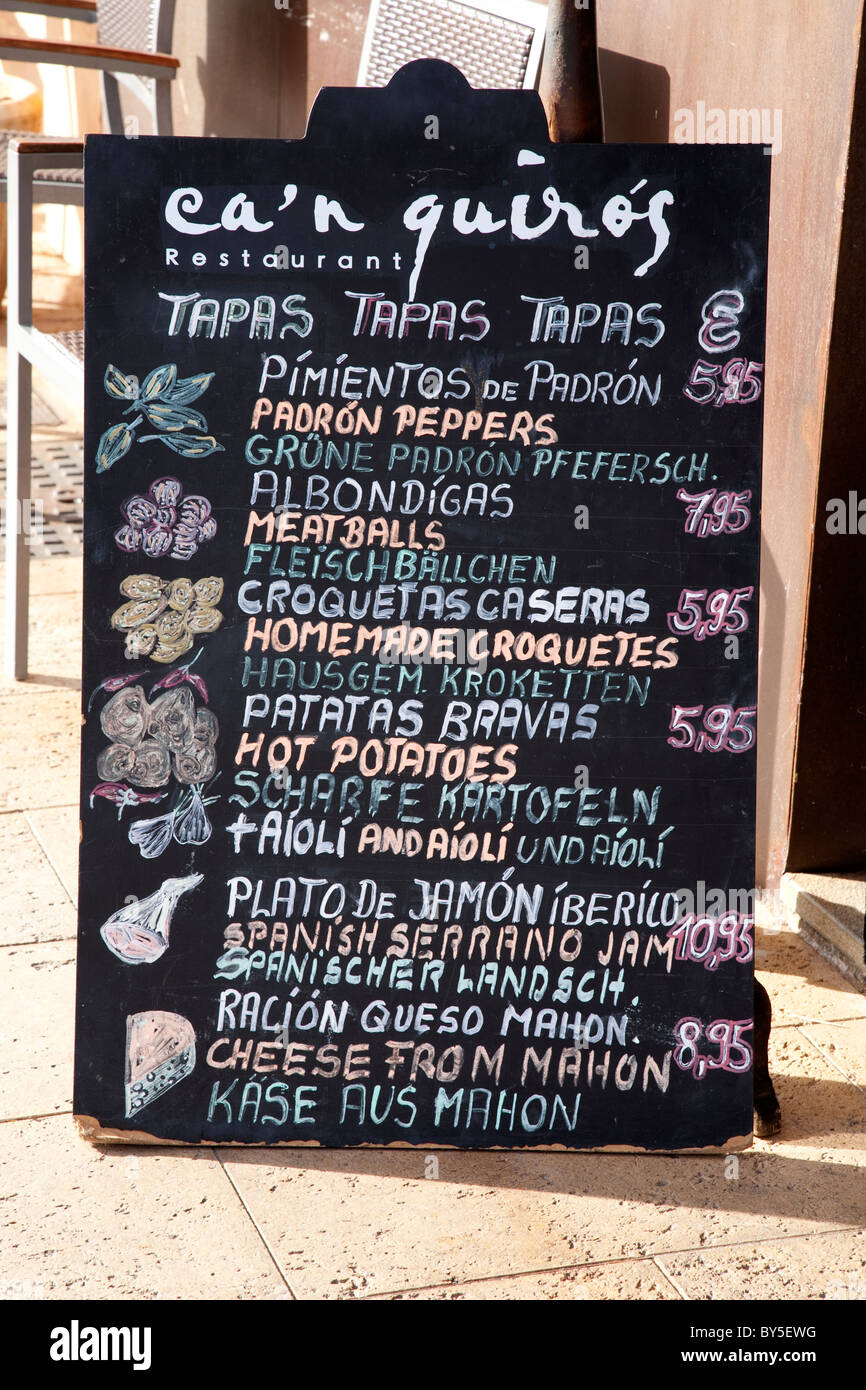 ca'n quirós
Restaurant
TAPAS TAPAS TAPAS €
PIMIENTOS DE PADRÓN 5,95
PADRÓN PEPPERS
GRÜNE PADRÓN PFEFERSCH.
ALBONDÍGAS 7,95
MEATBALLS
FLEISCHBÄLLCHEN
CROQUETAS CASERAS 5,95
HOMEMADE CROQUETES
HAUSGEM. KROKETTEN
PATATAS BRAVAS 5,95
HOT POTATOES
SCHARFE KARTOFELN
+ AÍOLÍ AND AÍOLÍ UND AÍOLÍ
PLATO DE JAMÓN ÍBERICO 10,95
SPANISH SERRANO JAM
SPANISCHER LANDSCH.
RACIÓN QUESO MAHON. 8,95
CHEESE FROM MAHON
KÄSE AUS MAHON
alamy
Image ID: BY5EWG
www.alamy.com